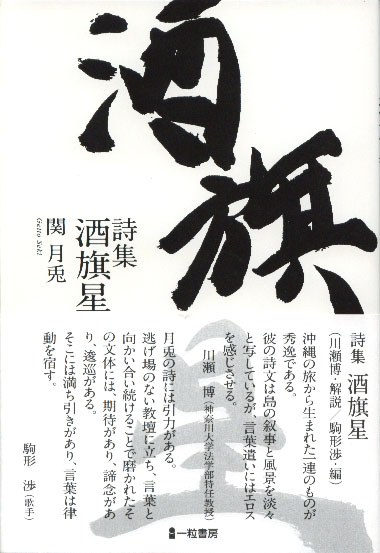 酒旗星
詩集
酒旗星
関 月兎
Getto Seki
詩集 酒旗星
（川瀬博・解説／駒形渉・編）
沖縄の旅から生まれた一連のものが
秀逸である。
彼の詩文は島の叙事と風景を淡々
と写しているが、言葉遣いにはエロス
を感じさせる。
川瀬 博（神奈川大学法学部特任教授）
月兎の詩には引力がある。
逃げ場のない教壇に立ち、言葉と
向かい合い続けることで磨かれたその
文体には、期待があり、諦念があ
り、逡巡がある。
そこには満ち引きがあり、言葉は律
動を宿す。
駒形 渉（歌手）
一粒書房